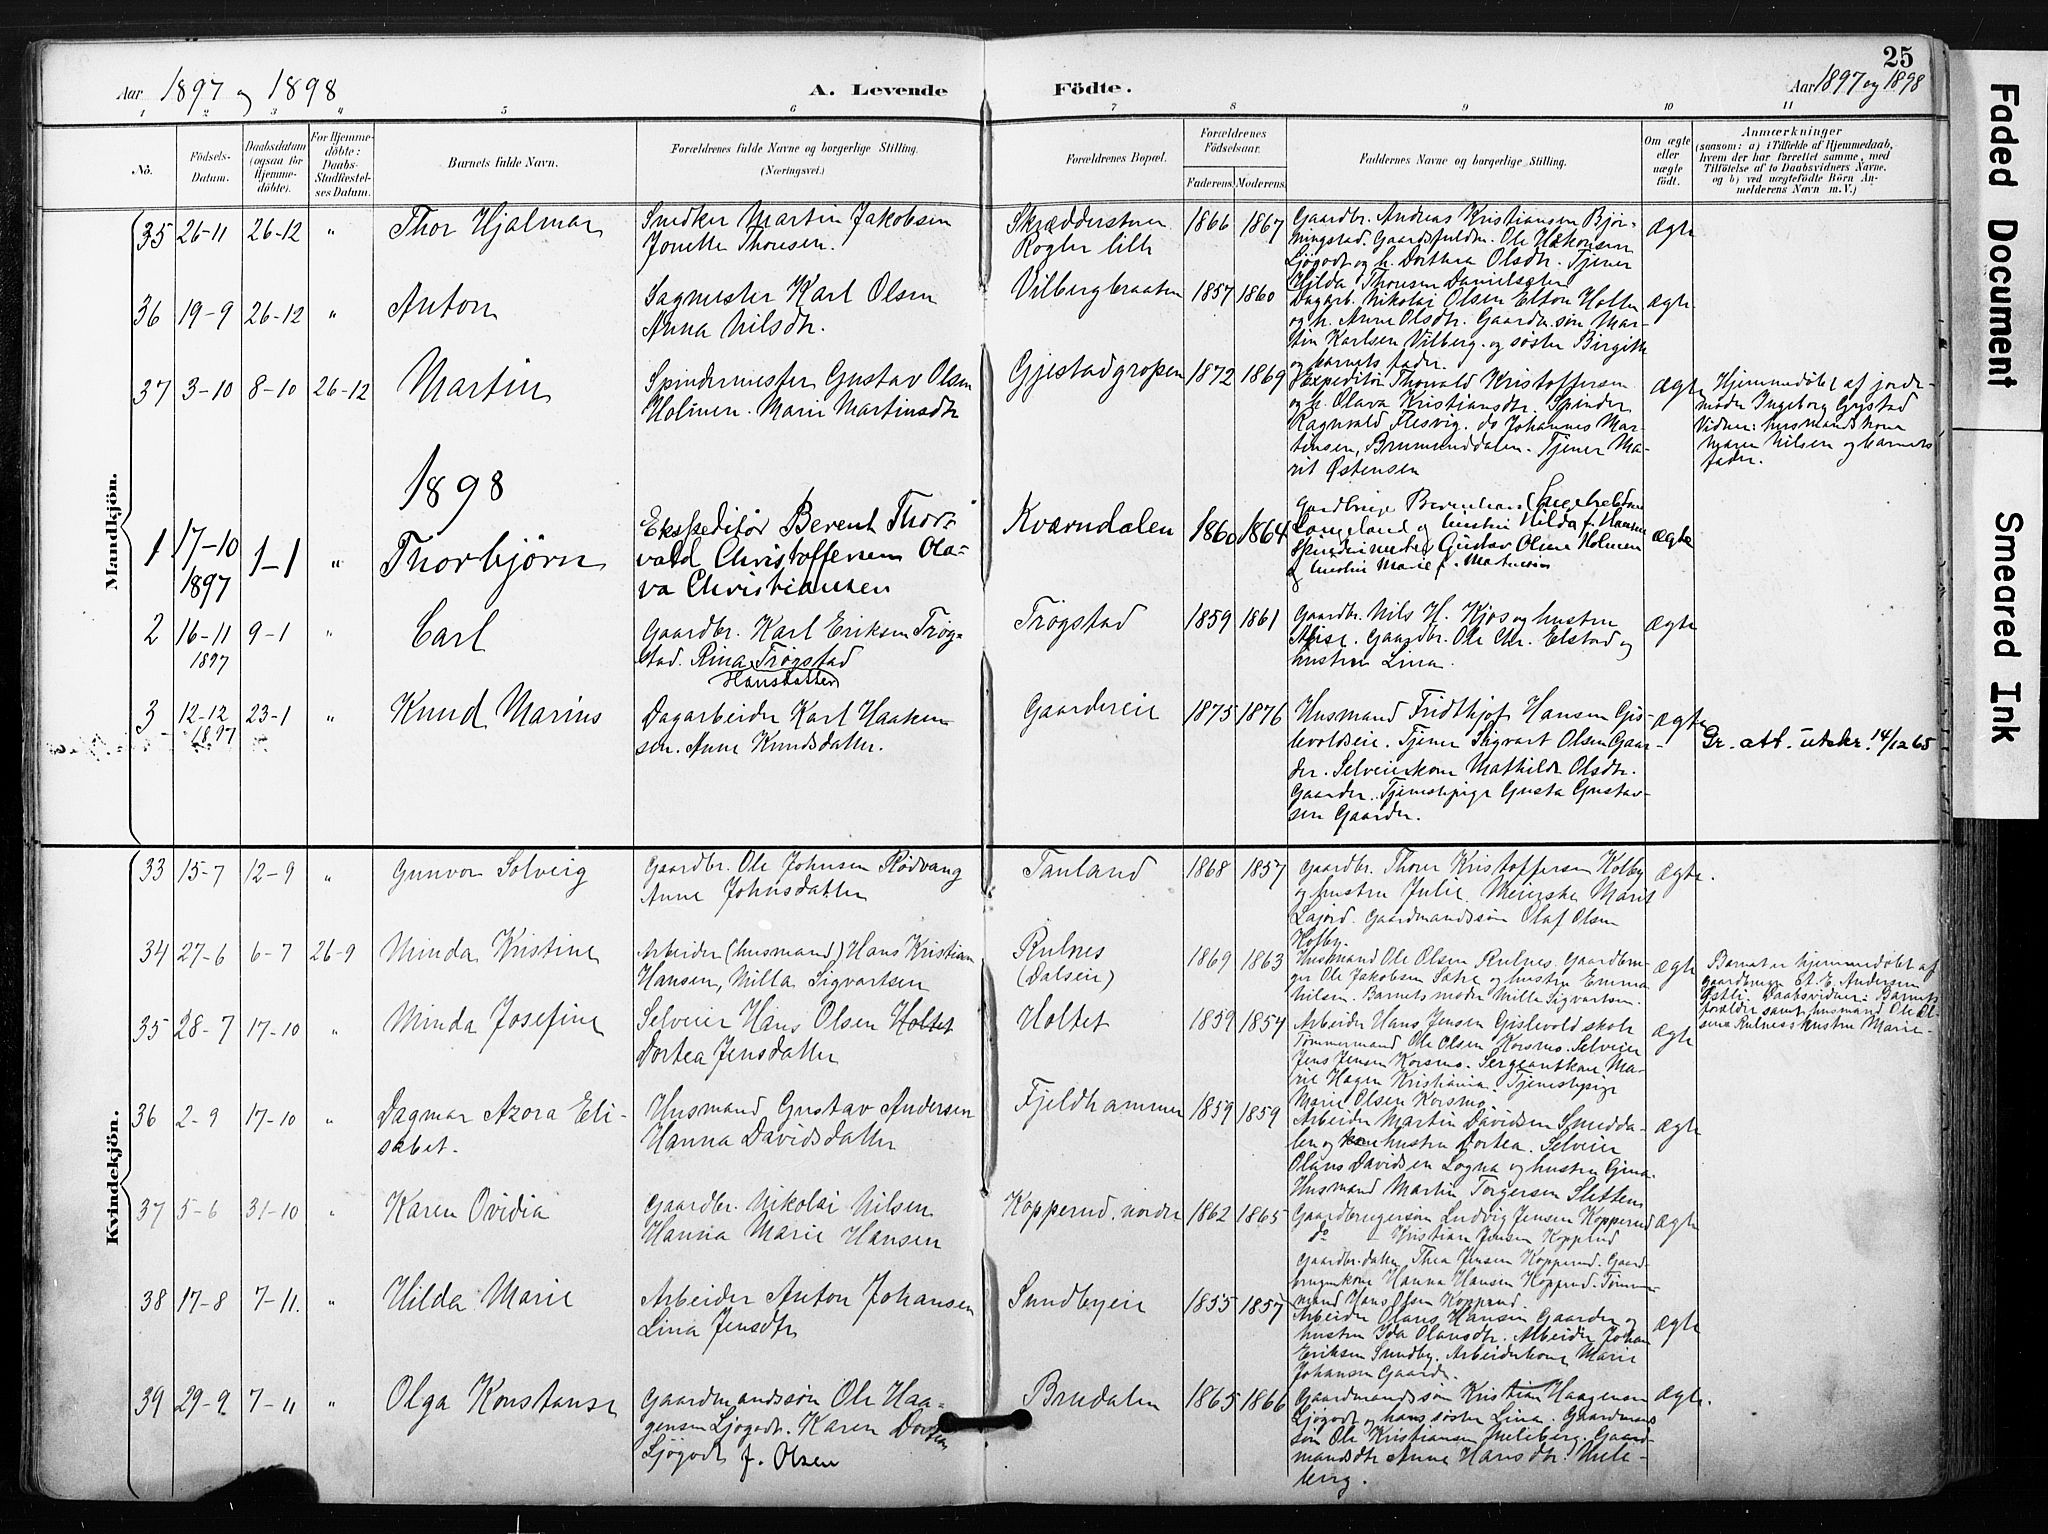 25
Aar 1897 og 1898
A. Levende
Födte.
Aar 1897 og 1898
Faded Document
Smeared Ink
1 2 3 4 5 6 7 8 9 10 11
No.
Födsels-
Datum.
Daabsdatum
(ogsaa for
Hjemme-
döbte).
For Hjemme-
döbte:
Daabs-
Stadfæstel-
ses Datum.
Barnets fulde Navn.
Forældrenes fulde Navne og borgerlige Stilling.
(Næringsvei.)
Forældrenes Bopæl.
Forældrenes
Födselsaar.
Faderens. Moderens.
Faddernes Navne og borgerlige Stilling.
Om ægte
eller
uægte
födt.
Anmærkninger
(saasom: a) i Tilfælde af Hjemmedaab,
hvem der har forrettet samme, med
Tilföielse af to Daabsvidners Navne,
og b) ved uægtefödte Börn An-
melderens Navn m. V.)
Mandkjön.
35 26-11 26-12 " Thor Hjalmar
Snedker Martin Jakobsen
Jonette Thoresen.
Skrædderstuen
Rogler lille
1866 1867
Gaardbr. Andreas Kristiansen Bjør-
ningstad. Gaardsfuldm. Ole Haakonsen
Ljøgodt og h. Dorthea Olsdtr. Tjener
Hilda Thoresen Danielsæter
ægte
36 19-9 26-12 " Anton
Sagmester Karl Olsen
Anna Nilsdtr.
Vilbergbraaten
1857 1860
Dagarb. Nikolai Olsen Elton Holter
og h. Anne Olsdtr. Gaardm.søn Mar-
tin Karlsen Vilberg. og søster Birgitte
og barnets fader.
ægte
37 3-10 8-10 26-12 Martin
Spindermester Gustav Olsen
Holmen. Marie Martinsdtr
Gjestadgropen
1872 1869
Expeditör Thorvald Kristoffersen
og h. Olava Kristiansdtr. Spinder
Ragnvald Flesvig. do Johannes Mar-
tinsen, Brummunddalen. Tjener Ma-
rit Østensen
ægte
Hjemmedöbt af jorde-
moder Ingeborg Gystad
Vidner: husmandskone
Maren Nilsen og barnets
fader.
1898
1 17-10 1897 1-1 " Thorbjørn
Ekspeditør Berent Thor-
vald Christoffersen Ola-
va Christiansen
Kværndalen
1860 1864
Langeland og hustru Hilda f. Hansen
Spindermester Gustav Olsen Holmen
og hustru Marie f. Martinsen
ægte
2 16-11 1897 9-1 " Carl
Gaardbr. Karl Eriksen Trøg-
stad. Rina Trøgstad
Hansdatter
Trögstad
1859 1861
Gaardbr. Nils H. Kjos og hustru
Alise. Gaardbr. Ole Chr. Elstad og
hustru Lina.
ægte
3 12-12 1897 23-1 " Knud Marius
Dagarbeider Karl Haaken-
sen. Anne Knudsdatter.
Gaardereie
1875 1876
Husmand Fridthjof Hansen Gis-
levoldseie. Tjener Sigvart Olsen Gaar-
der. Selveierkone Mathilde Olsdtr.
Gaarder. Tjenestepige Gusta Gustav-
sen Gaarder.
ægte
Gr. att. utskr. 14/12 65
Kvindekjön.
33 15-7 12-9 " Gunvor Solveig
Gaardbr. Ole Johnsen Rödvang
Anne Johnsdatter
Tanland
1868 1857
Gaardbr. Thorer Kristoffersen Kolby
og hustru Julie. Meierske Marit
Lajord. Gaardmandssön Olaf Olsen
Kolby.
ægte.
34 27-6 6-7 26-9 Minda Kristine
Arbeider (husmand) Hans Kristian
Hansen, Milla Sigvartsen
Rulnes
(Dalseie)
1869 1863
Husmand Ole Olsen Rulnes. Gaardbru-
ger Ole Jakobsen Sætre og hustru Emma
Nilsen. Barnets moder Milla Sigvartsen.
ægte
Barnet er hjemmedøbt af
gaardbruger A. E. Andersen
Østli. Daabsvidner: Barnets
forældre samt husmand Ole Ol-
sens Rulnes hustru Marie
35 28-7 17-10 " Minda Josefine
Selveier Hans Olsen Holtet
Dortea Jensdatter
Holtet
1859 1854
Arbeider Hans Jensen Gislevold skole
Tømmermand Ole Olsen Korsmo. Selveier
Jens Jensen Korsmo. Sergeantkone Ma-
rie Hagen Kristiania. Tjenestepige
Marie Olsen Korsmo.
ægte
36 2-9 17-10 " Dagmar Azora Eli-
sabet.
Husmand Gustav Andersen
Hanna Davidsdatter
Fjeldhammer
1859 1859
Arbeider Martin Davidsen Smedda-
len og hustru Dortea. Selveier
Olaus Davidsen Logna og hustru Gina.
Husmand Martin Torgersen Sletten
ægte
37 5-6 31-10 " Karen Ovidia
Gaardbr. Nikolai Nilsen
Hanna Marie Hansen
Kopperud, nordre
1862 1865
Gaardbrugersøn Ludvig Jensen Kopperud
do Kristian Jensen Kopperud
Gaardbr.datter Thea Jensen Kopperud. Gaard-
brugerkone Hanna Hansen Kopperud. Tømmer-
mand Hans Olsen Kopperud.
ægte
38 17-8 7-11. " Hilda Marie
Arbeider Anton Johansen
Lina Jensdtr
Sundbyeie
1855 1857
Arbeider Olaus Hansen Gaarder og
hustru Ida Olausdtr. Arbeider Johan
Eriksen Sundby. Arbeiderkone Marie
Johansen Gaarder.
ægte
39 29-9 7-11 " Olga Konstanse
Gaardmandssön Ole Haa-
gensen Ljøgodt. Karen Dortea
Ljøgodt f. Olsen
Brudalen
1865 1866
Gaardmandssøn Kristian Haagensen
Ljøgodt og hans søster Lina. Gaardmans
søn Ole Kristiansen Hieliberg. Gaard-
mandsdtr Anne Hansdtr. Hieli-
berg.
ægte.